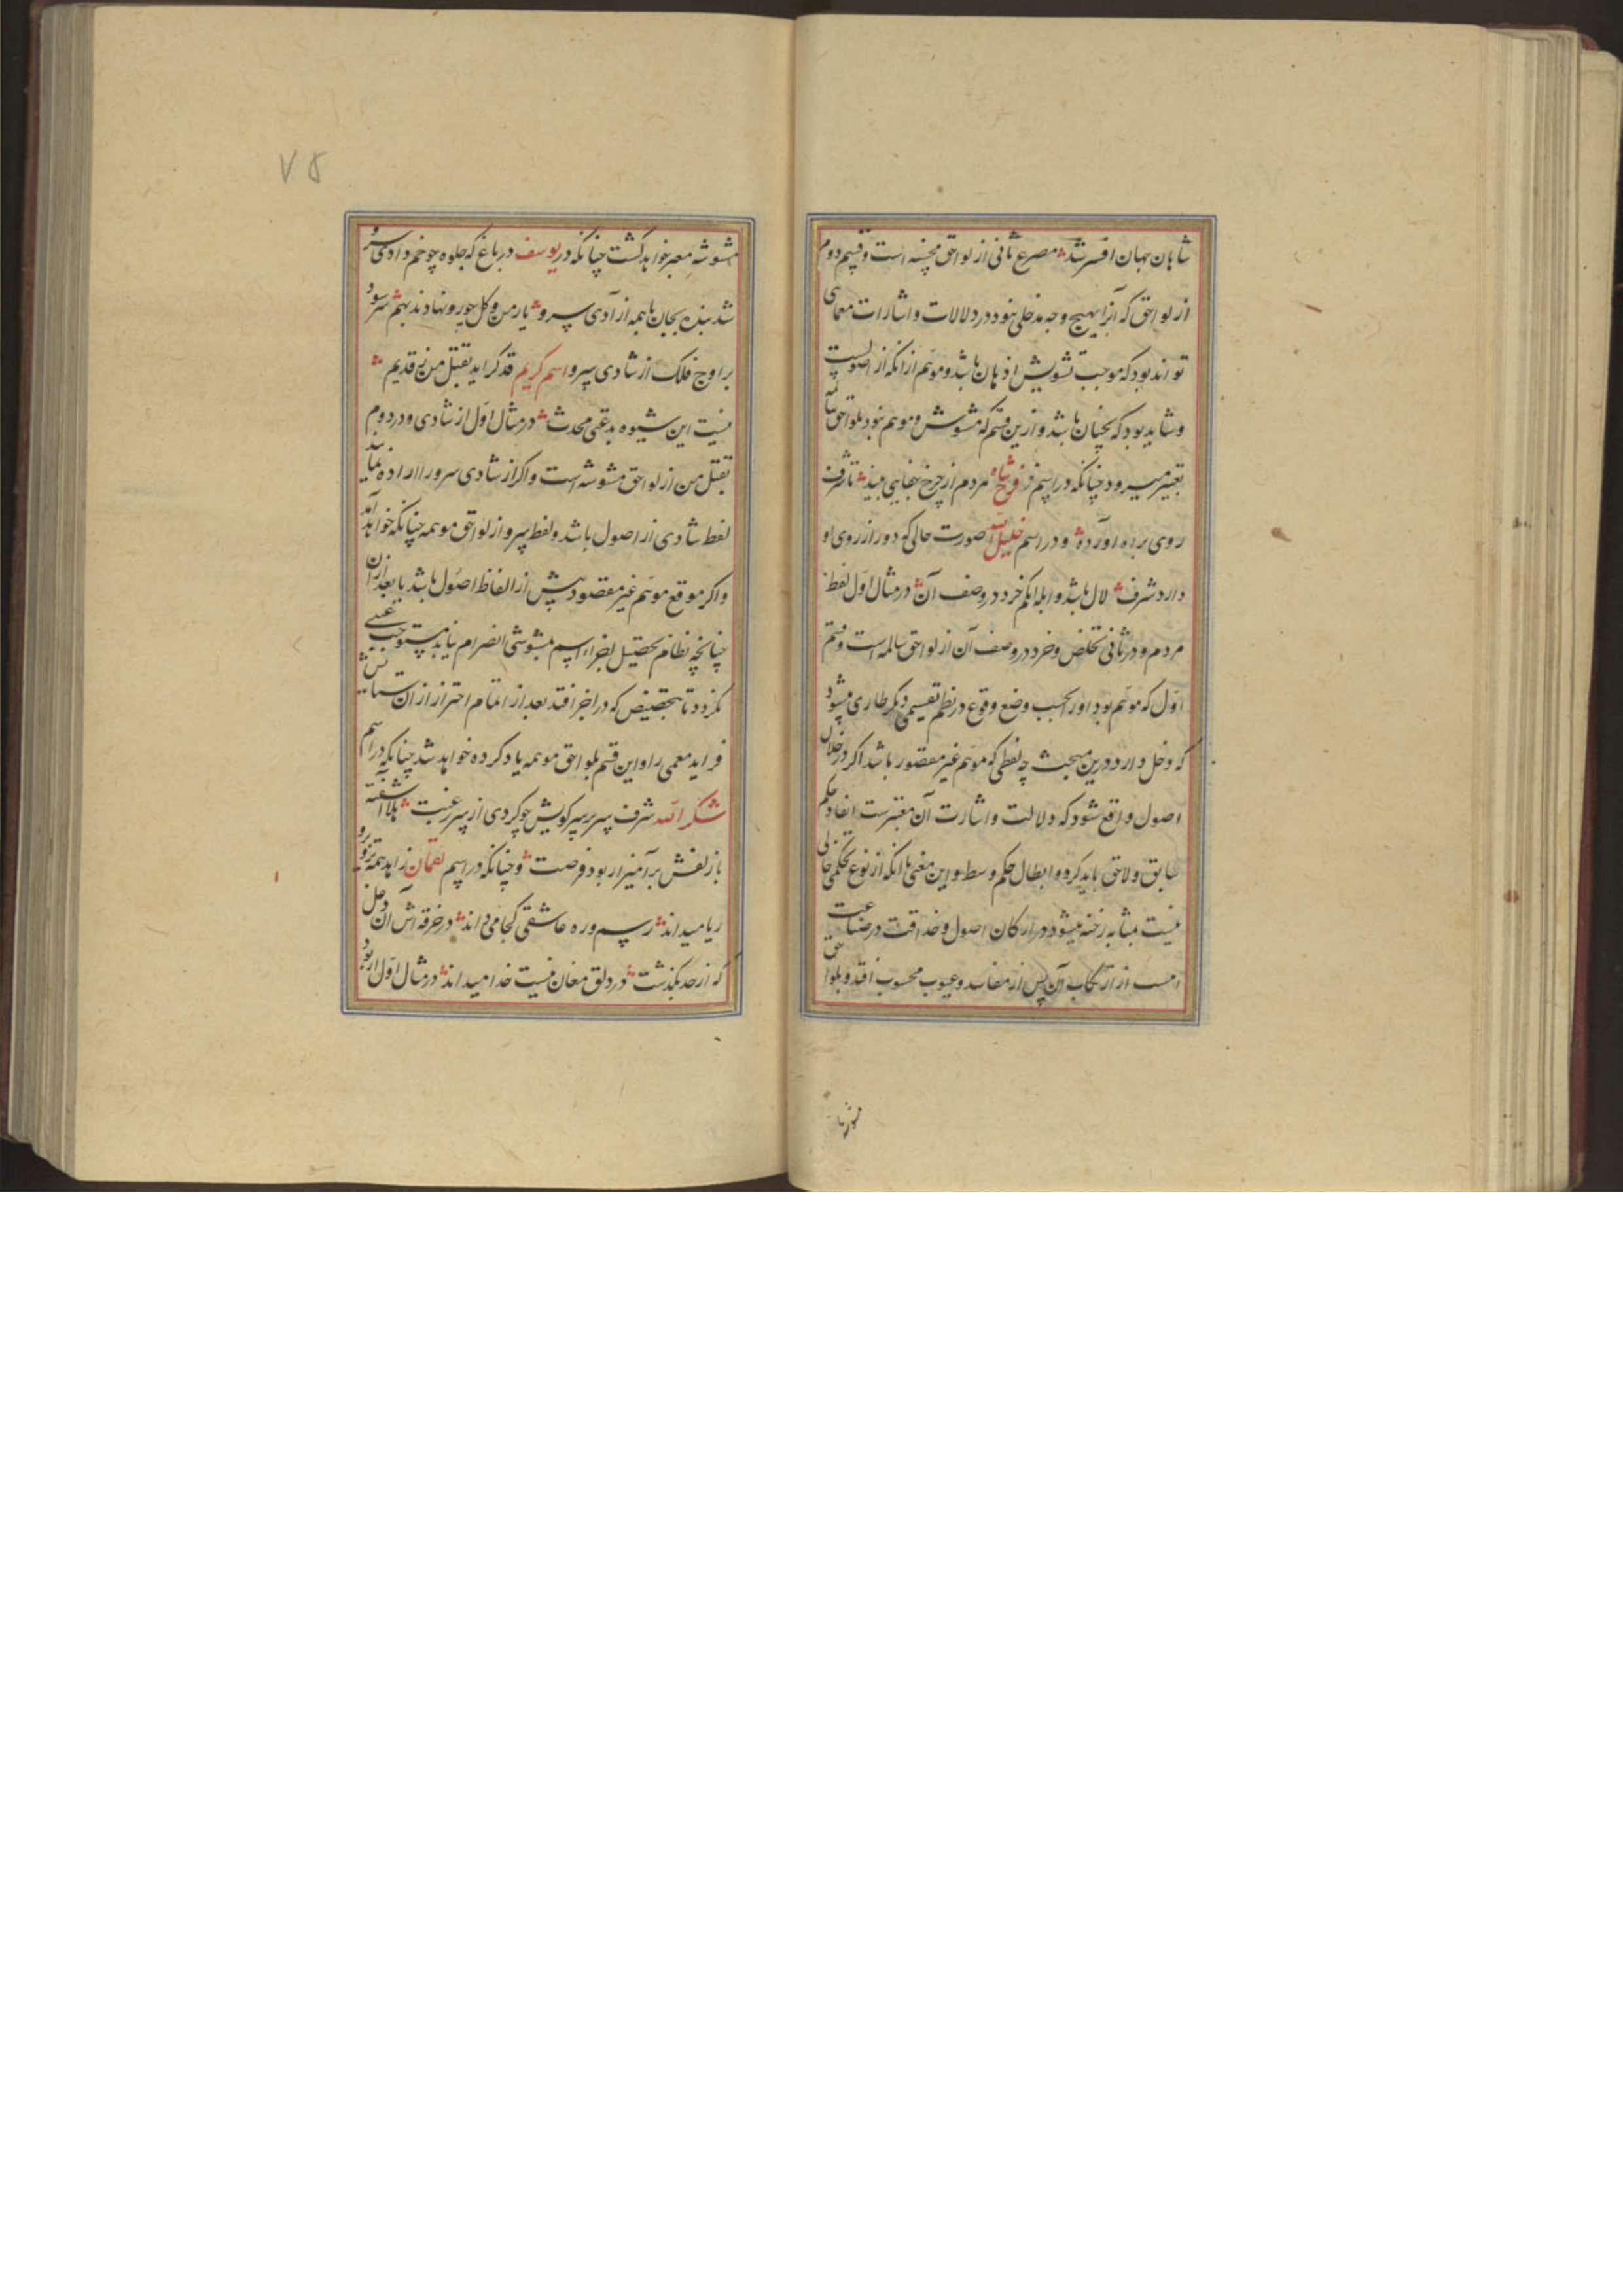 شاهان جهان افسر شد مصرع ثانی از لواحق محسنه است و قسم دوم
از لواحق که آنرا بهیچ وجه مدخلی نبود در دلالات و اشارات معمای
تواند بود که موجب تشویش اذهان باشد و موهم ازانکه از اصولست
و شاید بود که نچنان باشد و ازین قسم که مشوش و موهم نبود بلواحق سالمه
تعبیر میرود چنانکه در اسم فرخ شاه مردم از چرخ جفایی بیند تا شرف
روی براه آورده و در اسم خلیل الله صورت حالی که دور از روی او
دارد شرف لال باشد و ابله ابکم خرد در وصف آن در مثال اول لفظ
مردم و در ثانی تخلص و خرد در وصف آن از لواحق سالمه است و قسم
اول که موهم بود اورا بحسب وضع وقوع در نظم تقسیمی دیگر طاری میشود
که دخل دارد درین مبحث چه لفظی که موهم غیر مقصور باشد اگر در خلال
اصول واقع شود که دلالت و اشارت آن معتبرست انفاد حکم
سابق و لاحق باید کرد و ابطال حکم وسط و این معنی باانکه از نوع تحکمی خالی
نیست بمثابه رخنه میشود در ارکان اصول و حذاقت در صناعت
از ارتکاب آن پس از مفاسد و عیوب محسوب افتد و بلواحق
مشوشه
مشوشه معبر خواهد گشت چنانکه در یوسف در باغ که جلوه چو خم دادی سرو
شد بنده بجان با همه آزادی سرو یار من و گل چو رو نهادند بهم سرود
بر اوج فلک از شادی سرو اسم کریم قد گر اید تقتل من نی قدیم
نیست این شیوه بدعتی محدث در مثال اول از شادی و در دوم
تقتل من از لواحق مشوشه است و اگر از شادی سرو را اراده نمایند
لفظ شادی از اصول باشد و لفظ سرو از لواحق موهمه چنانکه خواهد آمد
و اگر موقع موهم غیر مقصود پیش از الفاظ اصول باشد یا بعد ازان
چنانچه نظام تحصیل اجزاء اسم بمشوشی انصرام نیابد مستوجب عیبی
نگردد تا بتخصیص که در اجزا افتد بعد از اتمام احتراز ازان ستایش
فزاید معمی را و این قسم بلواحق موهمه یاد کرده خواهد شد چنانکه در اسم
شکر الله شرف سر بر سر کویش چو کردی از سر رغبت بلا آشفته
باز لفش بر آمیز ار بود فرصت و چنانکه در اسم لقمان زاهد همه تزویر و
ریا میداند رسم و ره عاشقی کجا می داند در خرقه اش آن دخل
که از حد بگذشت در دلق مغان نیست خدا میداند در مثال اول ار بود
۷۵